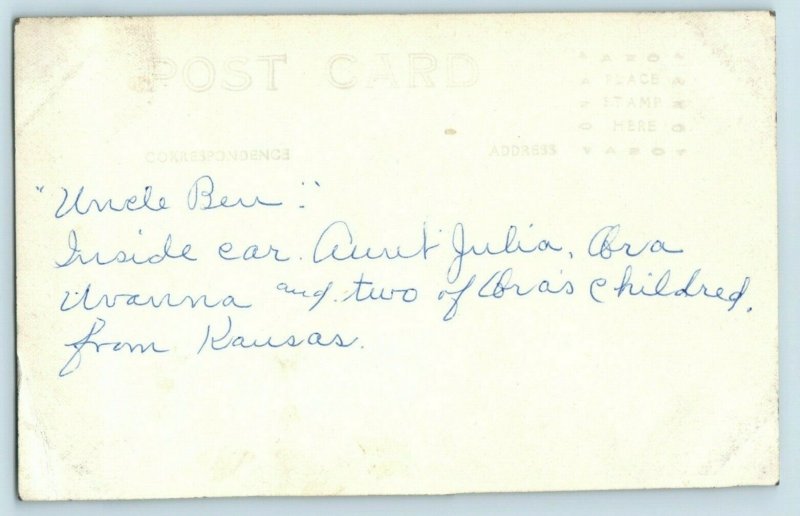 POST CARD
AZO
PLACE
STAMP
HERE
AZO
CORRESPONDENCE
ADDRESS
"Uncle Ben":
Inside car. Aunt Julia, Ora
Uvanna and two of Ora's Childred,
from Kansas.